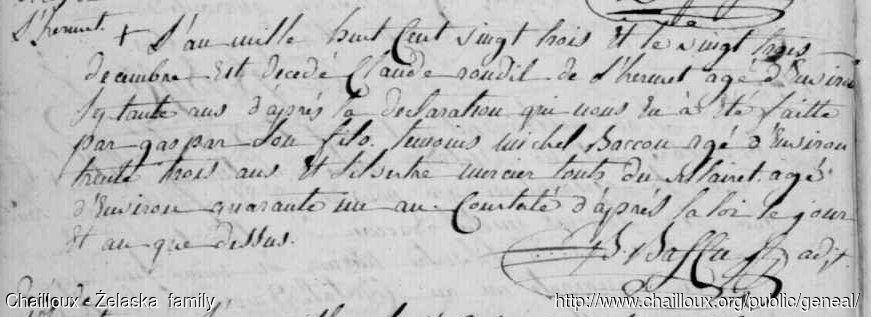 L'hermet + L'an mille huit Cent vingt trois Et le vingt trois
decembre Est decedé Claude roudil de L'hermet agé d'Environ
Septante ans d'aprés la declaration qui nous En à Eté faitte
par gaspar Son fils. temoins michel Baccou agé d'Environ
trente trois ans Et silvestre mercier touts du agé
d'Environ quarante un an. Constaté d'aprés la loi le jour
Et an que dessus.
adjt
Chailloux - Żelaska family
http://www.chailloux.org/public/geneal/